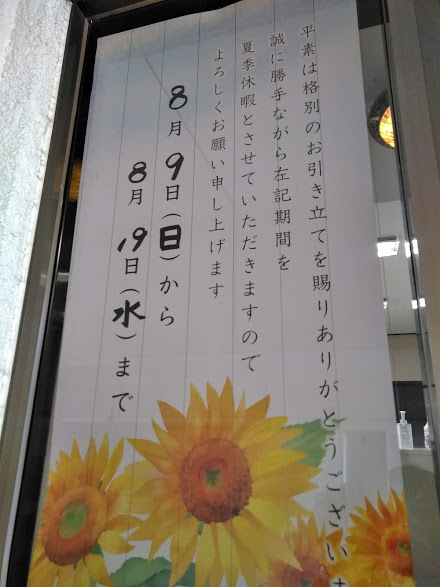 平素は格別のお引き立てを賜りありがとうございま
誠に勝手ながら左記期間を
夏季休暇とさせていただきますので
よろしくお願い申し上げます
8月9日(日)から
8月19日(水)まで